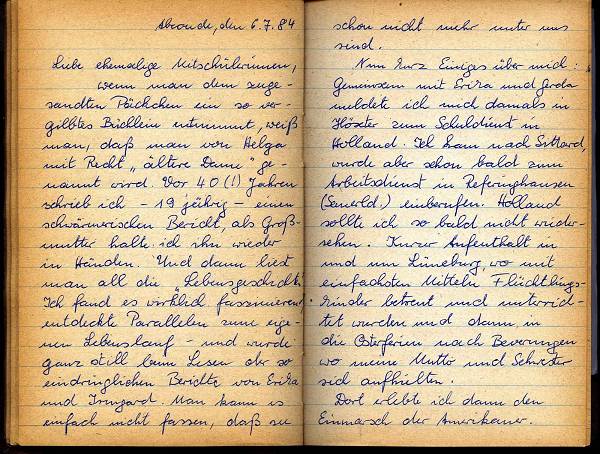 den 6.7.84
Liebe ehemalige Mitschülerinnen,
wenn man dem zuge-
sandten Päckchen ein so ver-
gilbtes Büchlein entnimmt, weiß
man, daß man von Helga
mit Recht „ältere Dame" ge-
nannt wird. Vor 40 (!) Jahren
schrieb ich - 19 jährig - einen
schwärmerischen Bericht, als Groß-
mutter halte ich ihn wieder
in Händen. Und dann liest
man all die „Lebensgeschicht
Ich fand es wirklich faszinierend,
entdeckte Parallelen zum eige-
nen Lebenslauf - und wurde
ganz still beim Lesen der so
eindringlichen Berichte von Erika
und Irmgard. Man kann es
einfach nicht fassen, daß sie
schon nicht mehr unter uns
sind.
Nun kurz Einiges über mich:
Gemeinsam mit Erika und Gerda
meldete ich mich damals in
Höxter zum Schuldienst in
Holland. Ich kam nach Sittard,
wurde aber schon bald zum
Arbeitsdienst in Referinghausen
(Sauerld.) einberufen. Holland
sollte ich so bald nicht wieder-
sehen. Kurzer Aufenthalt in
und um Lüneburg, wo mit
einfachsten Mitteln Flüchtlings-
kinder betreut und unterrich-
tet wurden und dann in
die Osterferien nach Beverungen
wo meine Mutter und Schwester
sich aufhielten.
Dort erlebte ich dann den
Einmarsch der Amerikaner.